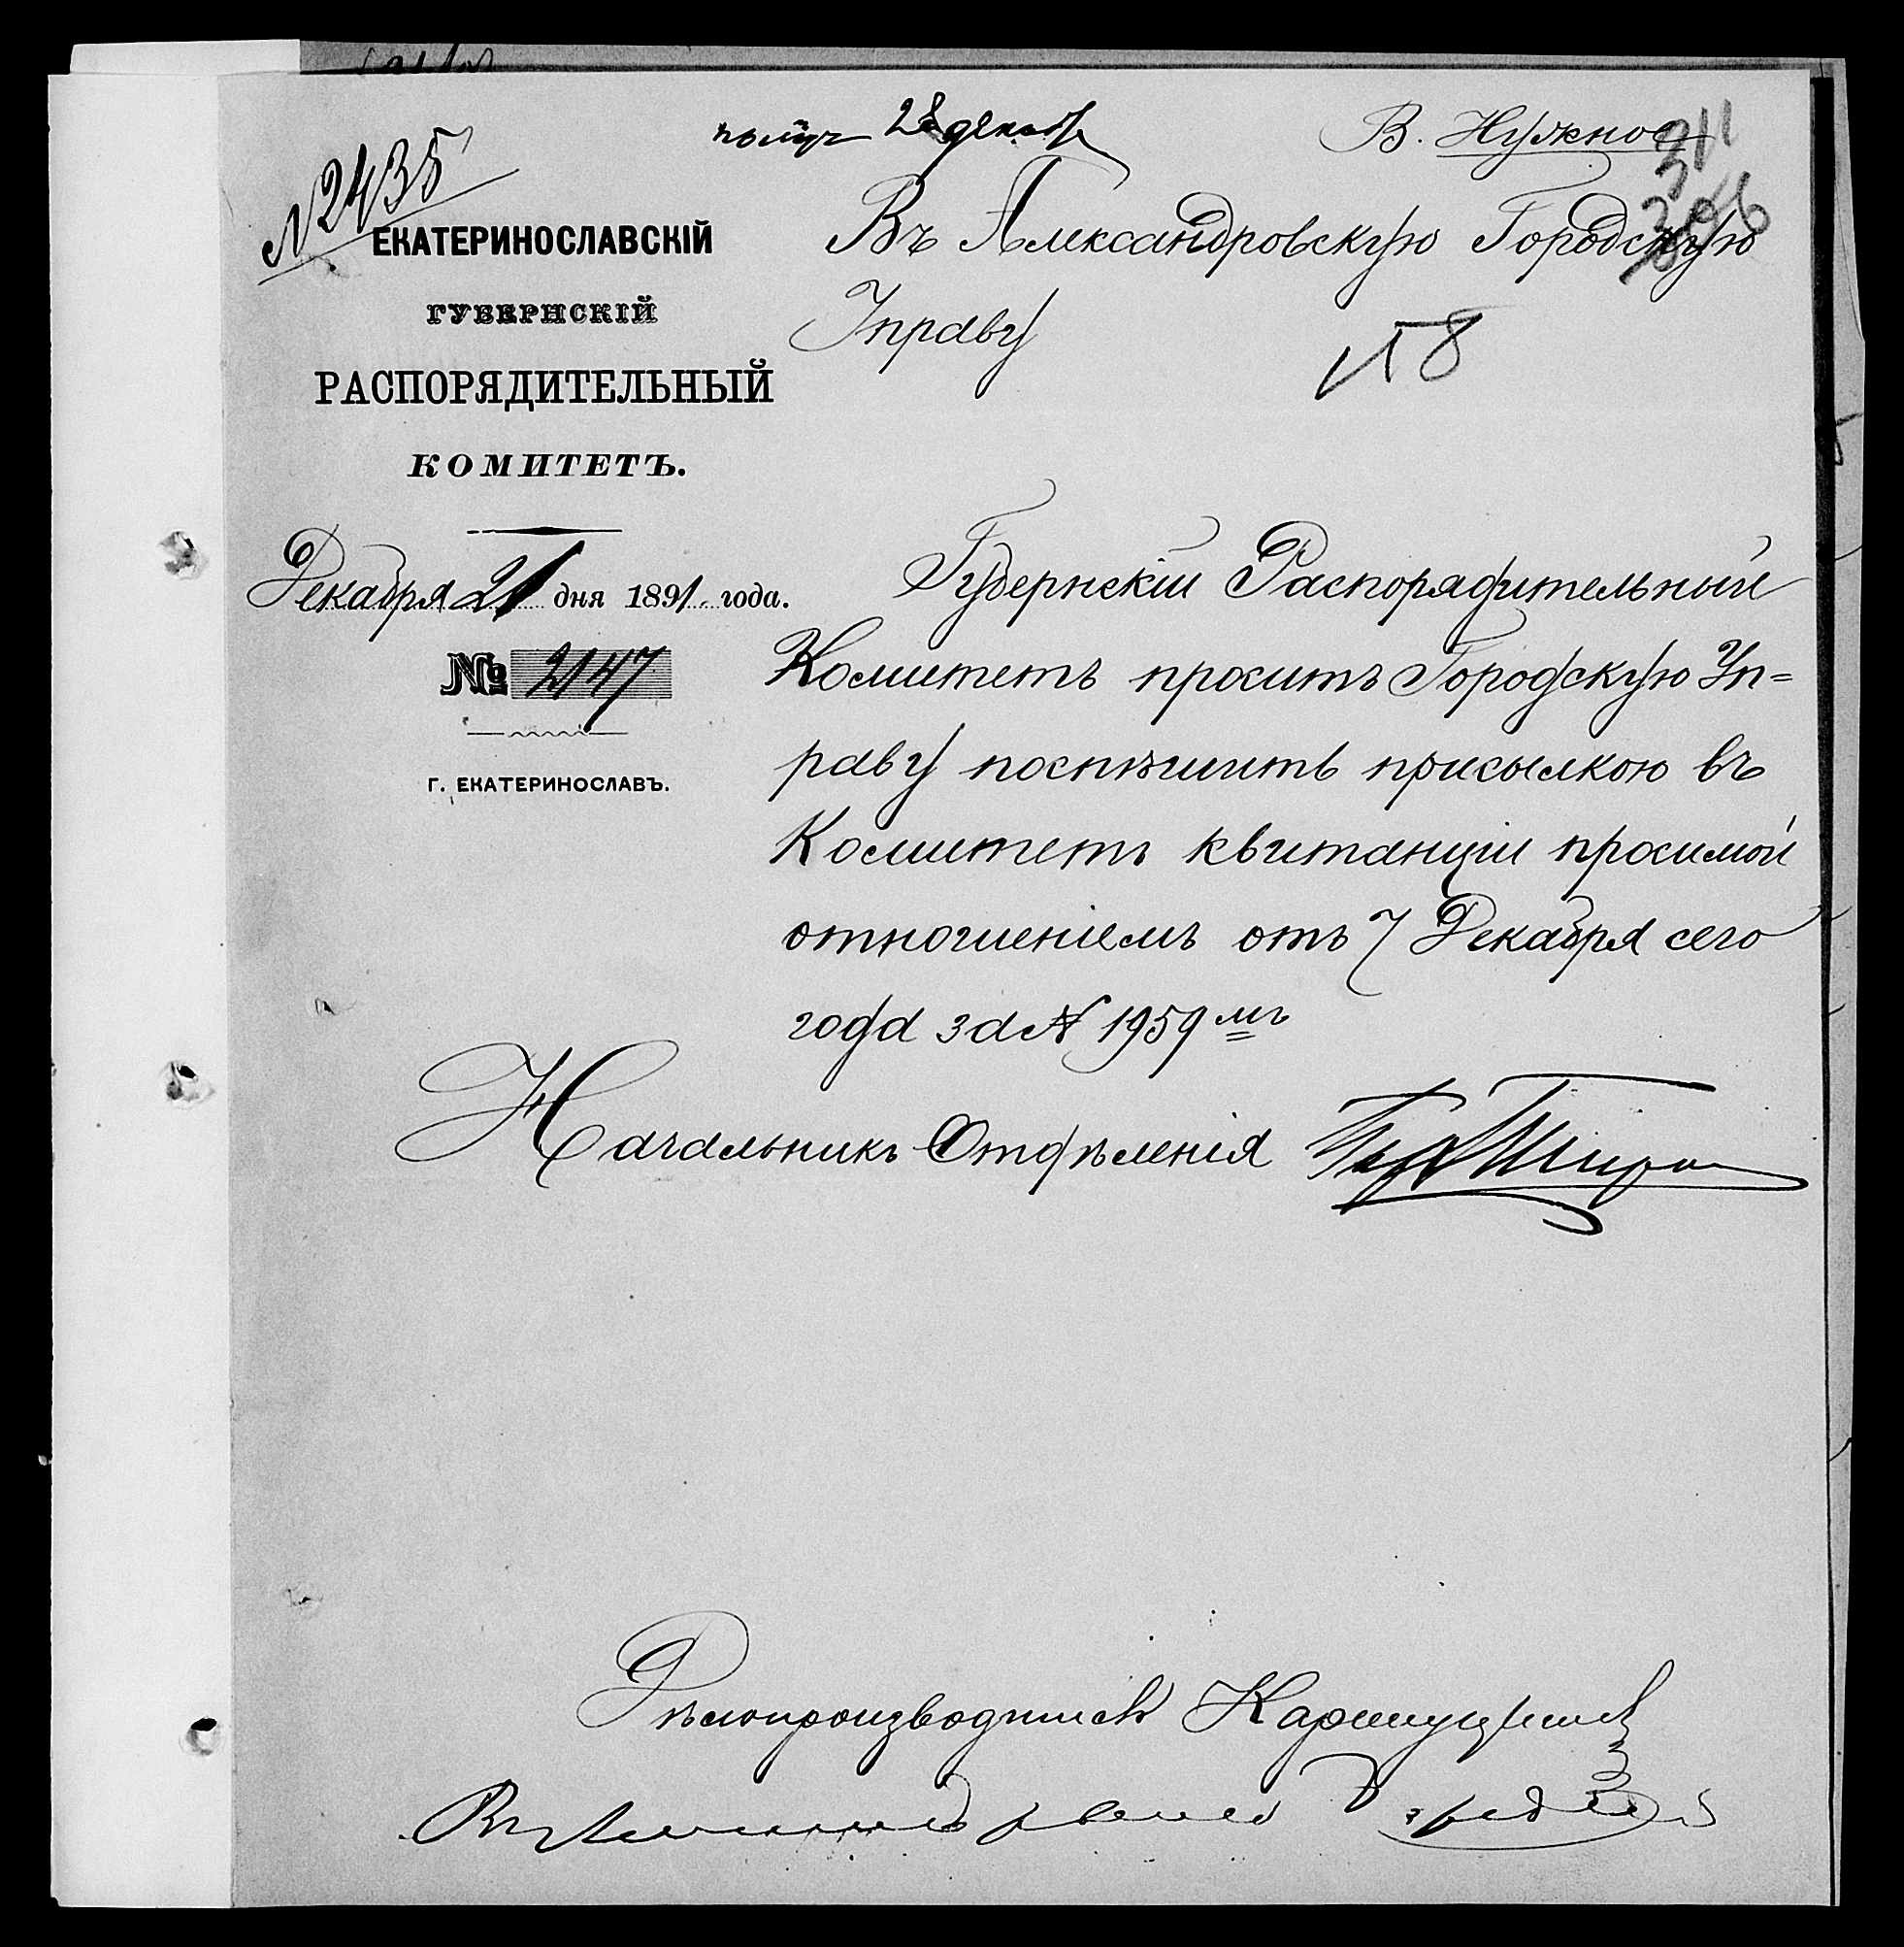 № 2435
получ 28 декаб
В. Нужное
311
ЕКАТЕРИНОСЛАВСКІЙ
ГУБЕРНСКІЙ
РАСПОРЯДИТЕЛЬНЫЙ
КОМИТЕТЪ.
Декабря 21 дня 1891 года.
№ 2147
Г. ЕКАТЕРИНОСЛАВЪ.
Въ Александровскую Городскую
Управу
Губернскій Распорядительный
Комитетъ проситъ Городскую Уп=
раву поспѣшить присылкою въ
Комитетъ квитанціи просимой
отношеніемъ отъ 7 Декабря сего
года за № 1959 мъ
Начальникъ Отдѣленія
Дѣлопроизводитель